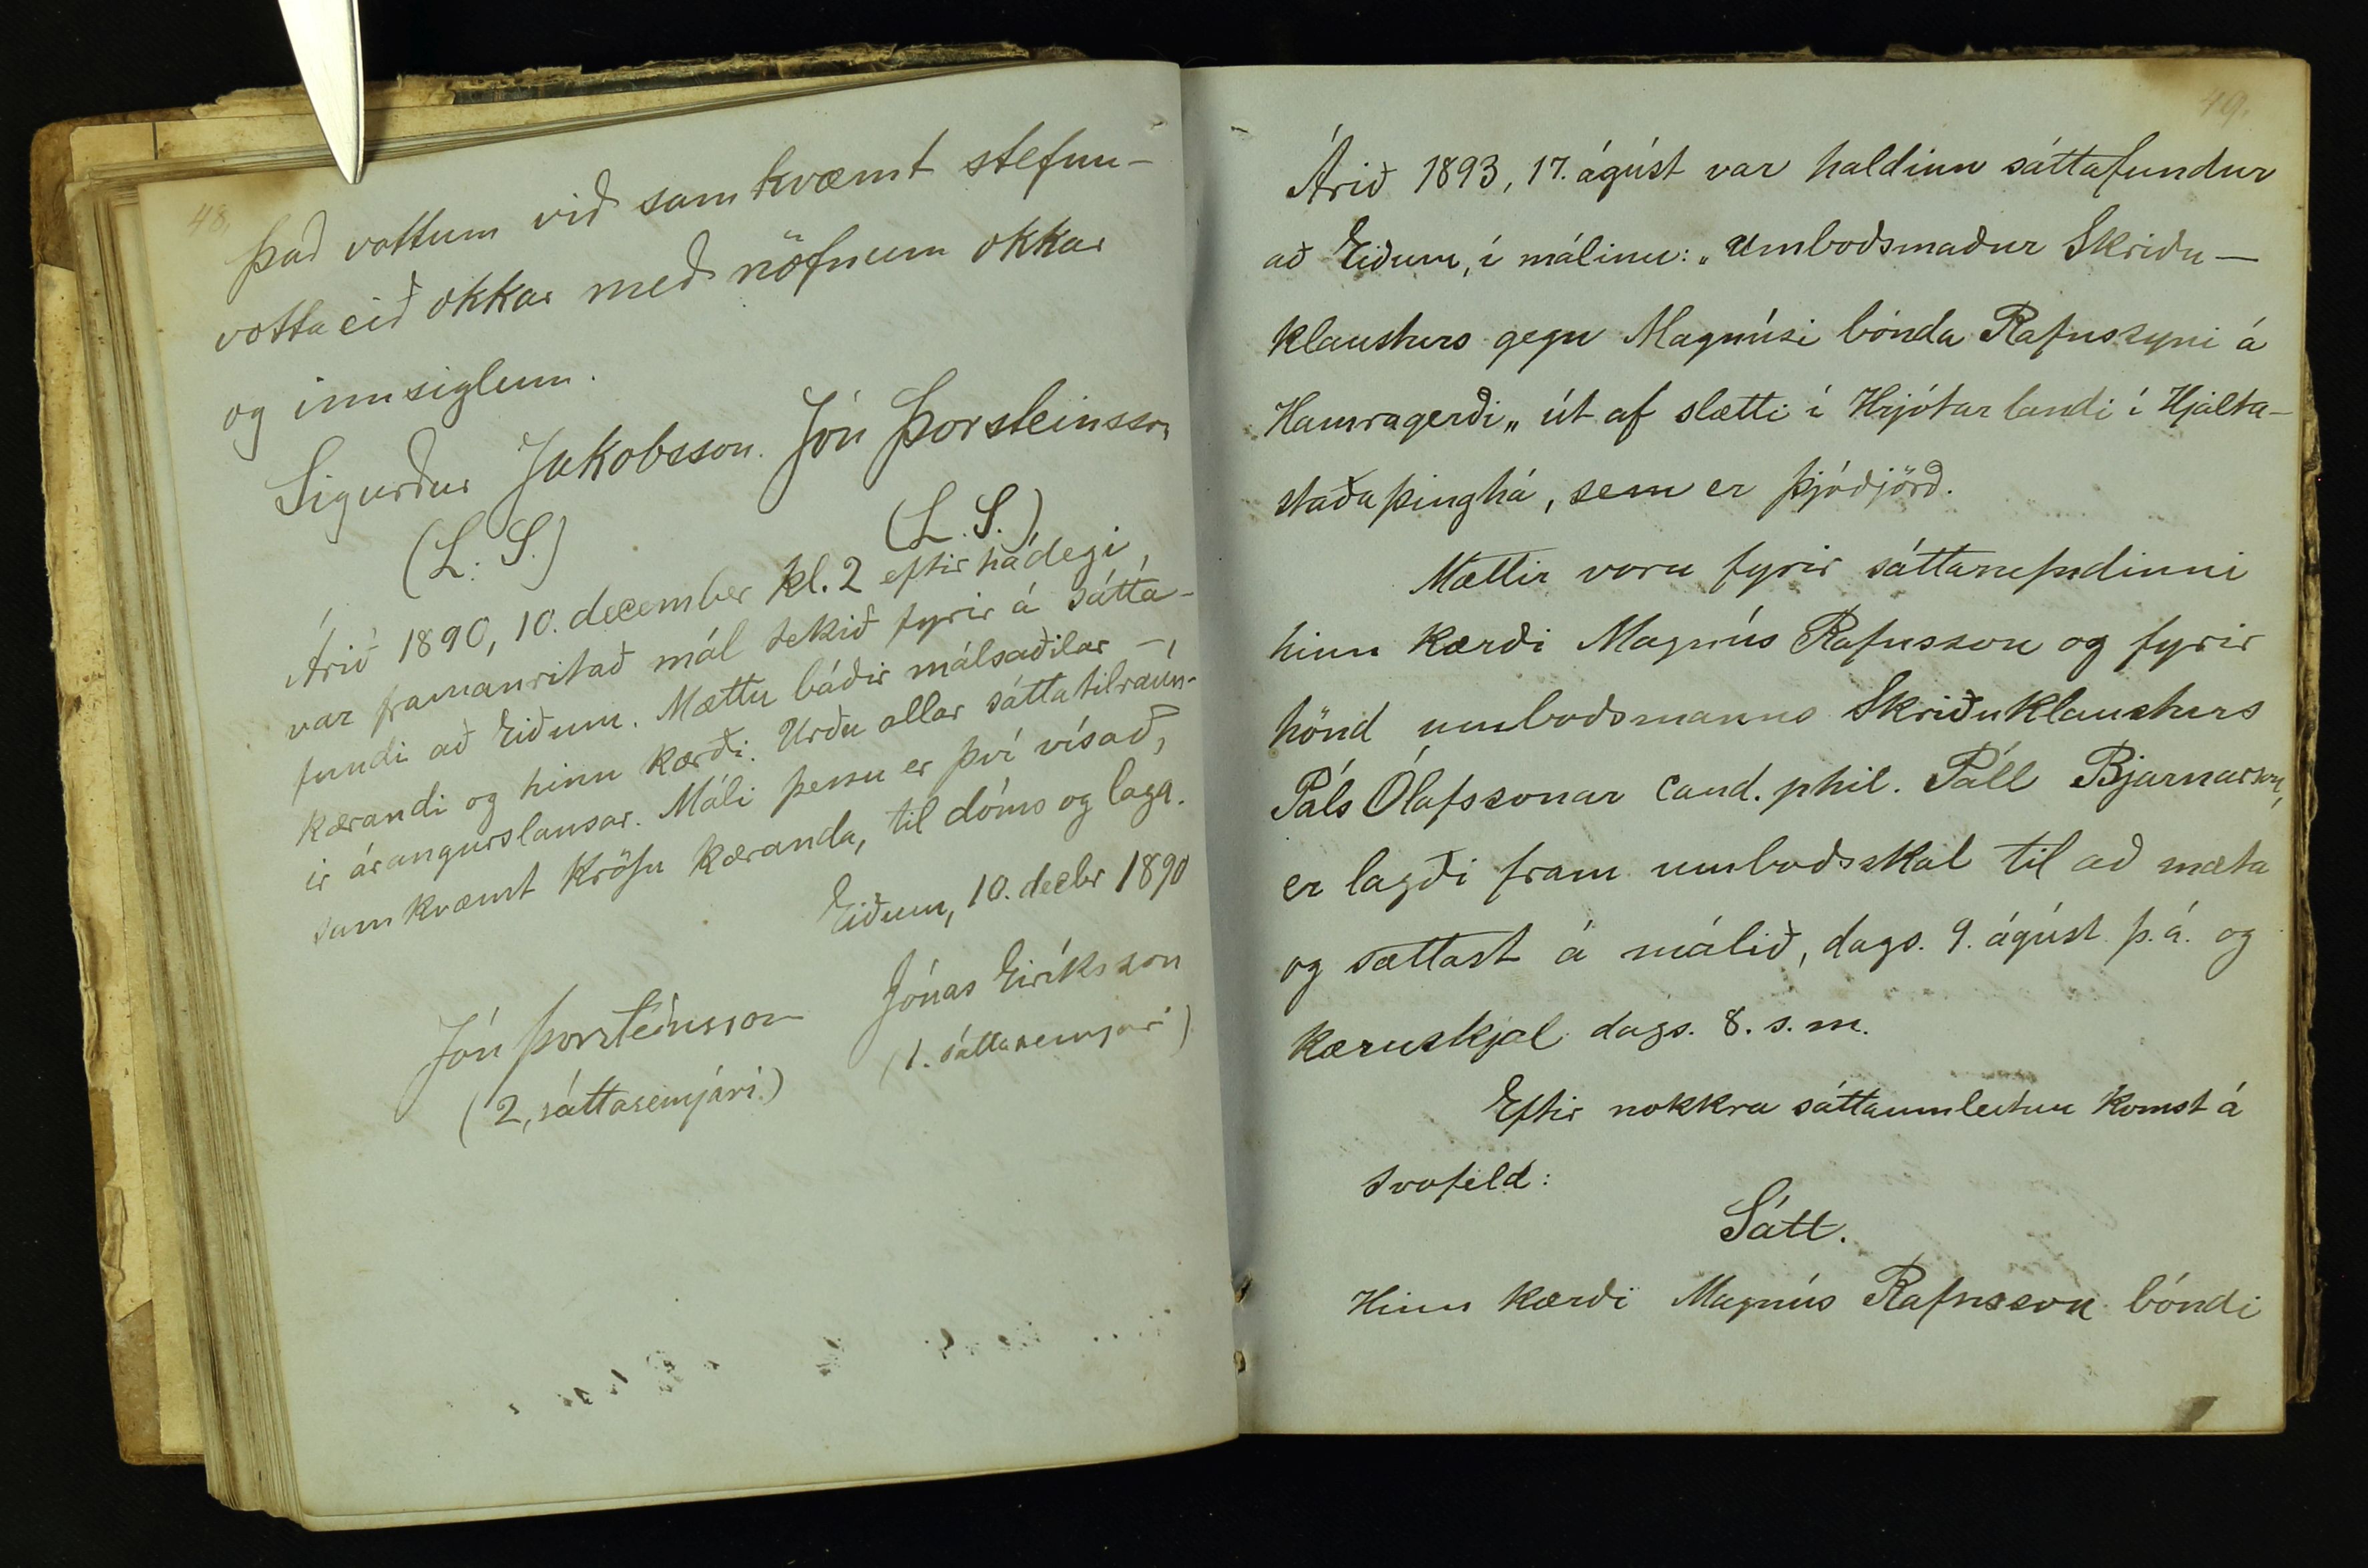 48.
Það vottum við samkvæmt stefnu-
vottaeið okkar með nöfnum okkar
og innsiglum.
Sigurður Jakobsson. Jón Þorsteinsson
(L. S.) (L. S.)
Árið 1890, 10. december kl. 2 eftir hádegi,
var framanritað mál tekið fyrir á sátta-
fundi að Eiðum. Mættu báðir málsaðilar –,
kærandi og hinn kærði. Urðu allar sáttatilraun-
ir árangurslausar. Máli þessu er því vísað,
samkvæmt kröfu kæranda, til dóms og laga.
Eiðum, 10. decbr 1890
Jónas Eiríksson
(1. sáttasemjari)
Jón Þorsteinsson
(2, sáttasemjari.)
49.
Árið 1893, 17. ágúst var haldinn sáttafundur
að Eiðum, í málinu: „Umboðsmaður Skriðu-
klausturs gegn Magnúsi bónda Rafnssyni á
Hamragerði„ út af slætti í Hrjótar landi í Hjalta-
staðaþinghá, sem er þjóðjörð.
Mættir voru fyrir sáttanefndinni
hinn kærði Magnús Rafnsson og fyrir
hönd umboðsmanns Skriðuklausturs
Páls Ólafssonar cand. phil. Páll Bjarnarson,
er lagði fram umboðsskal til að mæta
og sættast á málið, dags. 9. ágúst þ. á. og
kæruskjal dags. 8. s. m.
Eftir nokkra sáttaumleitun komst á
svofeld:
Sátt.
Hinn kærði Magnús Rafnsson bóndi